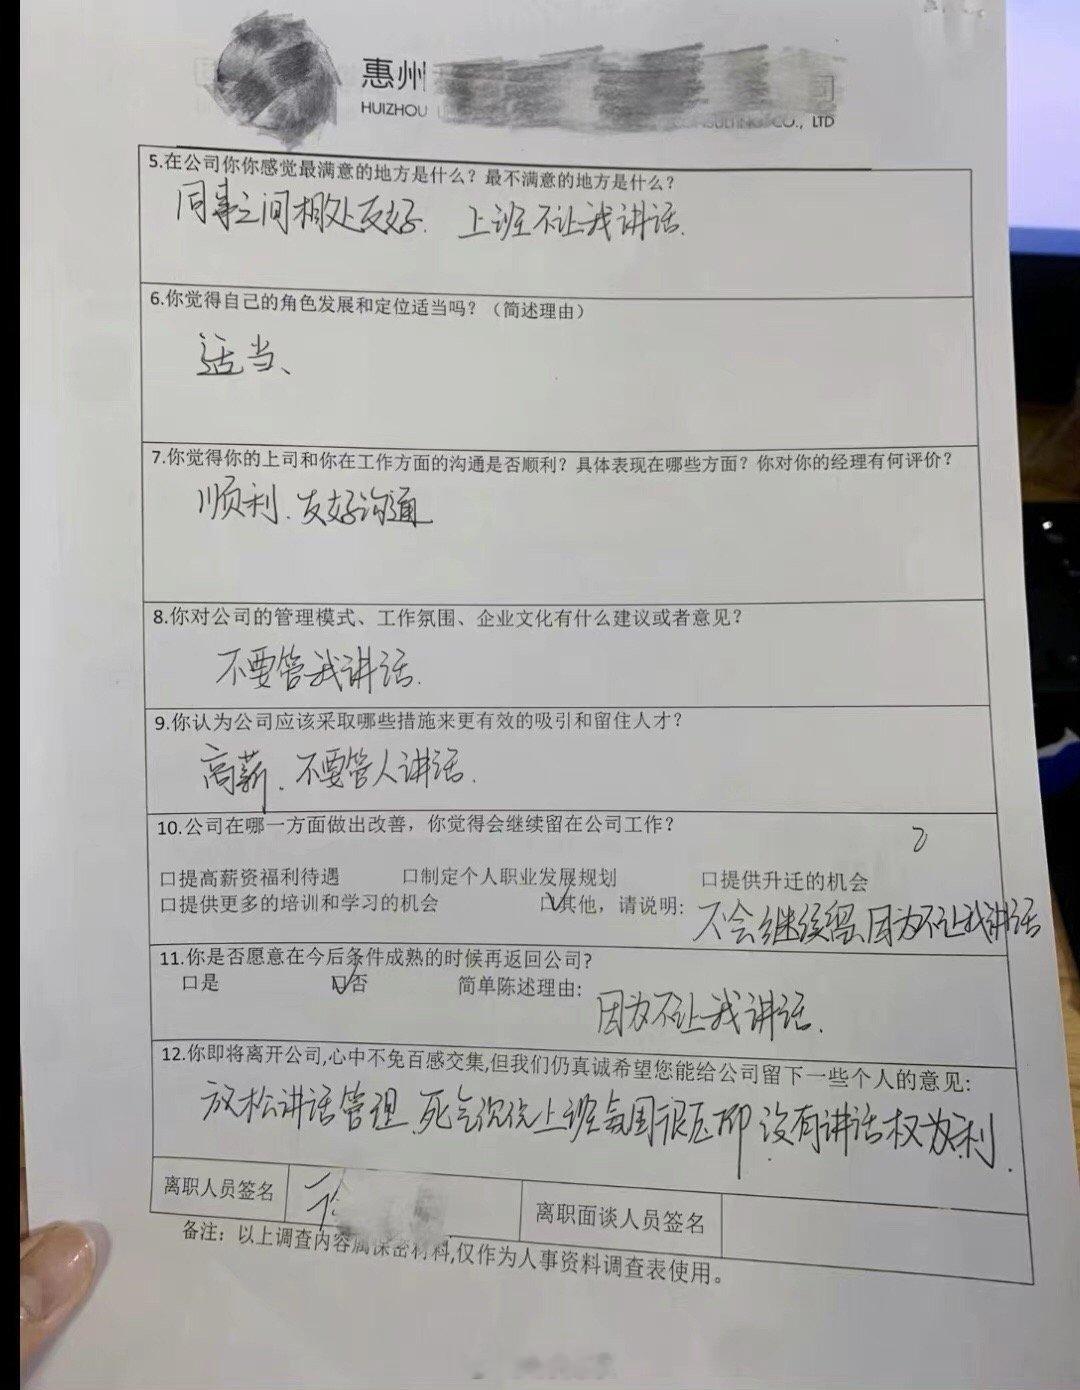 惠州
HUIZHOU
CONSULTING CO., LTD
5.在公司你你感觉最满意的地方是什么？最不满意的地方是什么？
同事之间相处友好. 上班不让我讲话.
6.你觉得自己的角色发展和定位适当吗？（简述理由）
适当、
7.你觉得你的上司和你在工作方面的沟通是否顺利？具体表现在哪些方面？你对你的经理有何评价？
顺利. 友好沟通
8.你对公司的管理模式、工作氛围、企业文化有什么建议或者意见？
不要管我讲话.
9.你认为公司应该采取哪些措施来更有效的吸引和留住人才？
高薪. 不要管人讲话.
10.公司在哪一方面做出改善，你觉得会继续留在公司工作？
口提高薪资福利待遇 口制定个人职业发展规划 口提供升迁的机会
口提供更多的培训和学习的机会 口其他，请说明: 不会继续留因为不让我讲话
11.你是否愿意在今后条件成熟的时候再返回公司?
口是 口否 简单陈述理由: 因为不让我讲话.
12.你即将离开公司,心中不免百感交集,但我们仍真诚希望您能给公司留下一些个人的意见:
放松讲话管理. 死气沉沉上班氛围很压抑. 没有讲话权为利.
离职人员签名 离职面谈人员签名
备注：以上调查内容属保密材料,仅作为人事资料调查表使用。